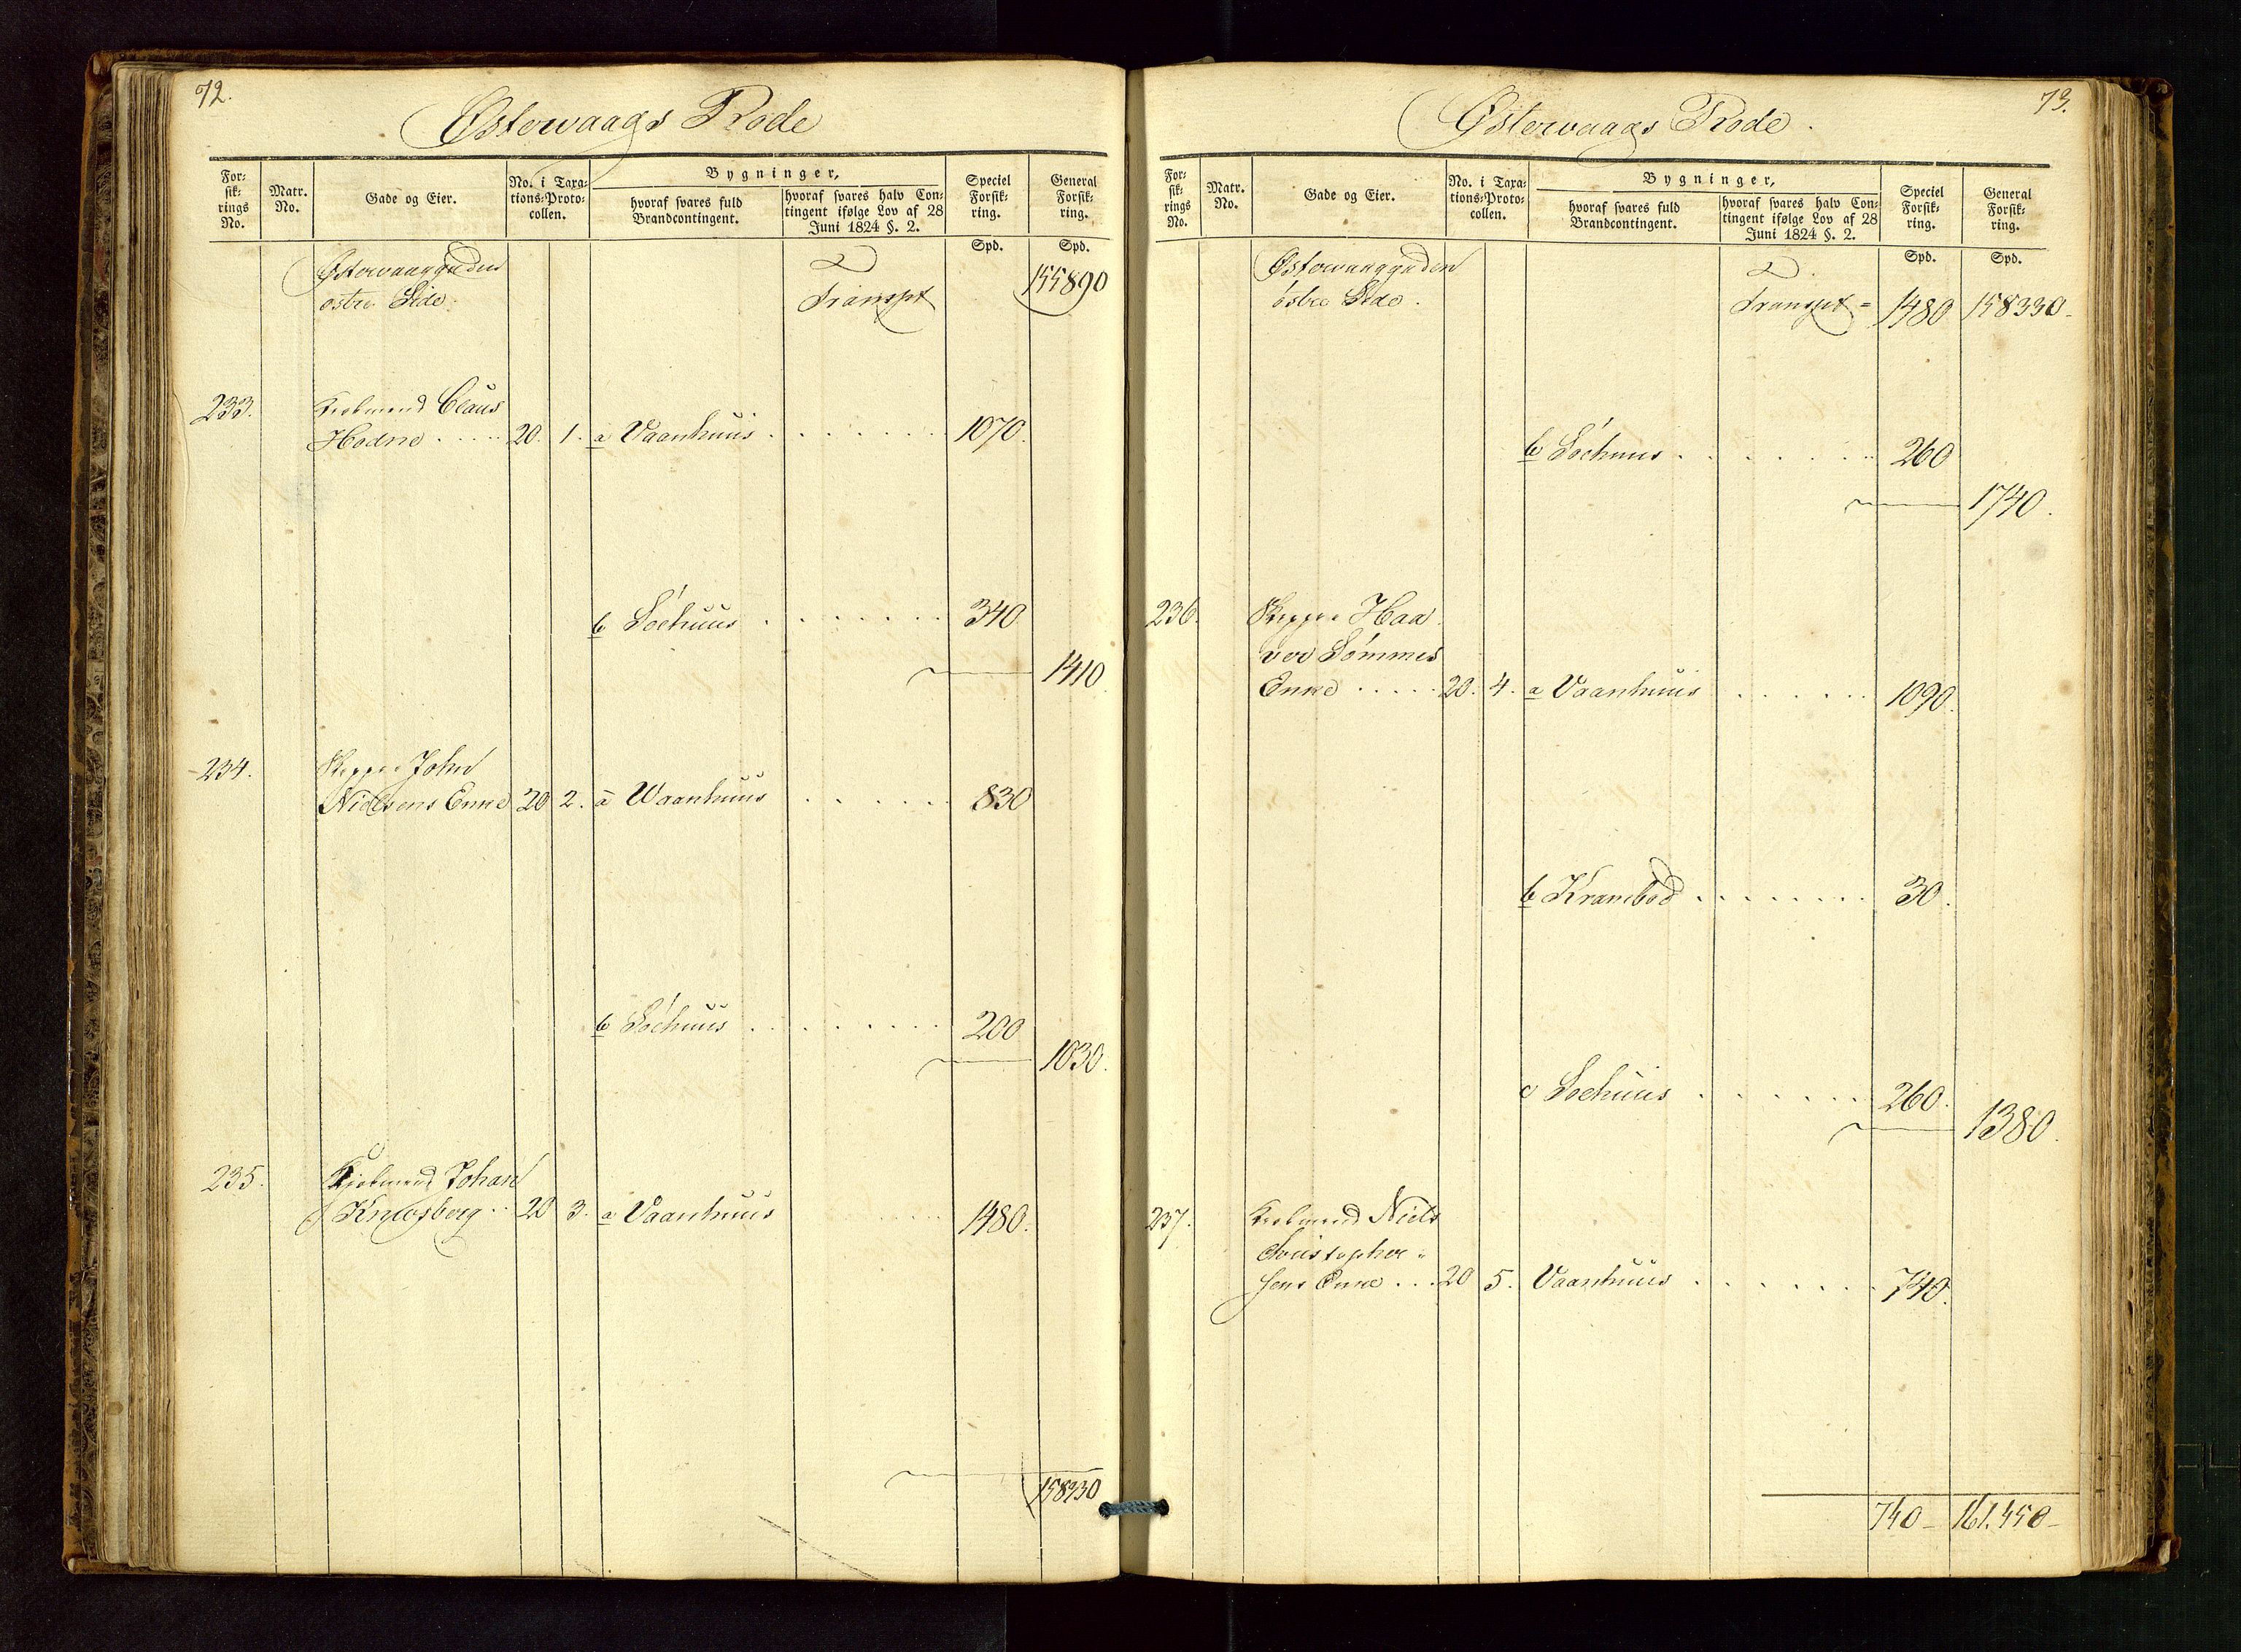 72.
Østervaags Rode
For-
sik-
rings
No.
Matr.
No.
Gade og Eier.
No. i Taxa-
tions-Proto-
collen.
Bygninger,
hvoraf svares fuld
Brandcontingent.
hvoraf svares halv Con-
tingent ifølge Lov af 28
Juni 1824 §. 2.
Speciel
Forsik-
ring.
General
Forsik-
ring.
Spd. Spd.
Østervaaggaden
østre Side.
Transpt 155890
233. Kjøbmand Claus
Hodne ..... 20. 1. a Vaanhuus ........ 1070.
b Søehuus ....... 340
1410
234. Skipper John
Nielsens Enke 20 2. a Waanhuus ...... 830
b Søehuus ........ 200
1030.
235. Kjøbmand Johan
20 3. a Vaanhuus ...... 1480.
158330
73.
Østervaags Rode.
For-
sik-
rings
No.
Matr.
No.
Gade og Eier.
No. i Taxa-
tions-Proto-
collen.
Bygninger,
hvoraf svares fuld
Brandcontingent.
hvoraf svares halv Con-
tingent ifølge Lov af 28
Juni 1824 §. 2.
Speciel
Forsik-
ring.
General
Forsik-
ring.
Spd. Spd.
Østervaaggaden
østre Side.
Transpt = 1480 158330-
b Søehuus ....... 260
1740.
236. Skipper Haa
vor Sømmes
Enke ..... 20. 4. a Vaanhuus ...... 1090.
b Krambod ........ 30.
c Søehuus ...... 260.
1380.
237. Kjøbmand Niels
Christopher-
sens Enke ... 20 5. Vaanhuus ....... 740.
740- 161.450-